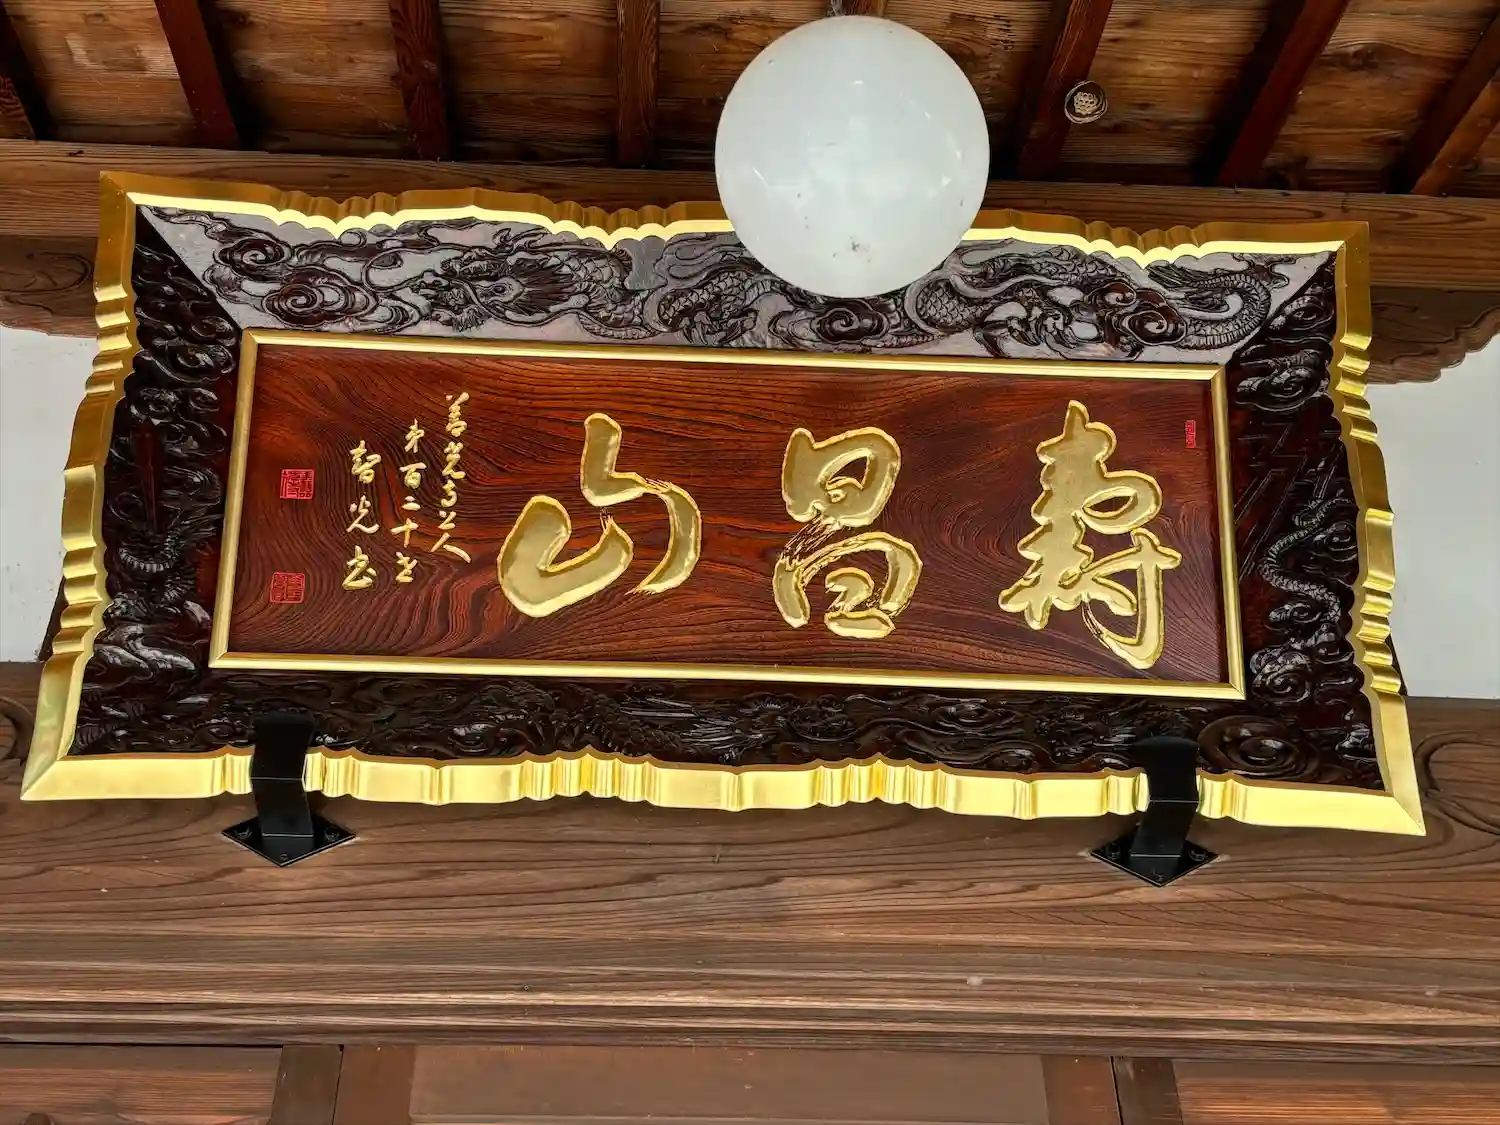 壽昌山
善光寺上人
第百二十世
智光書